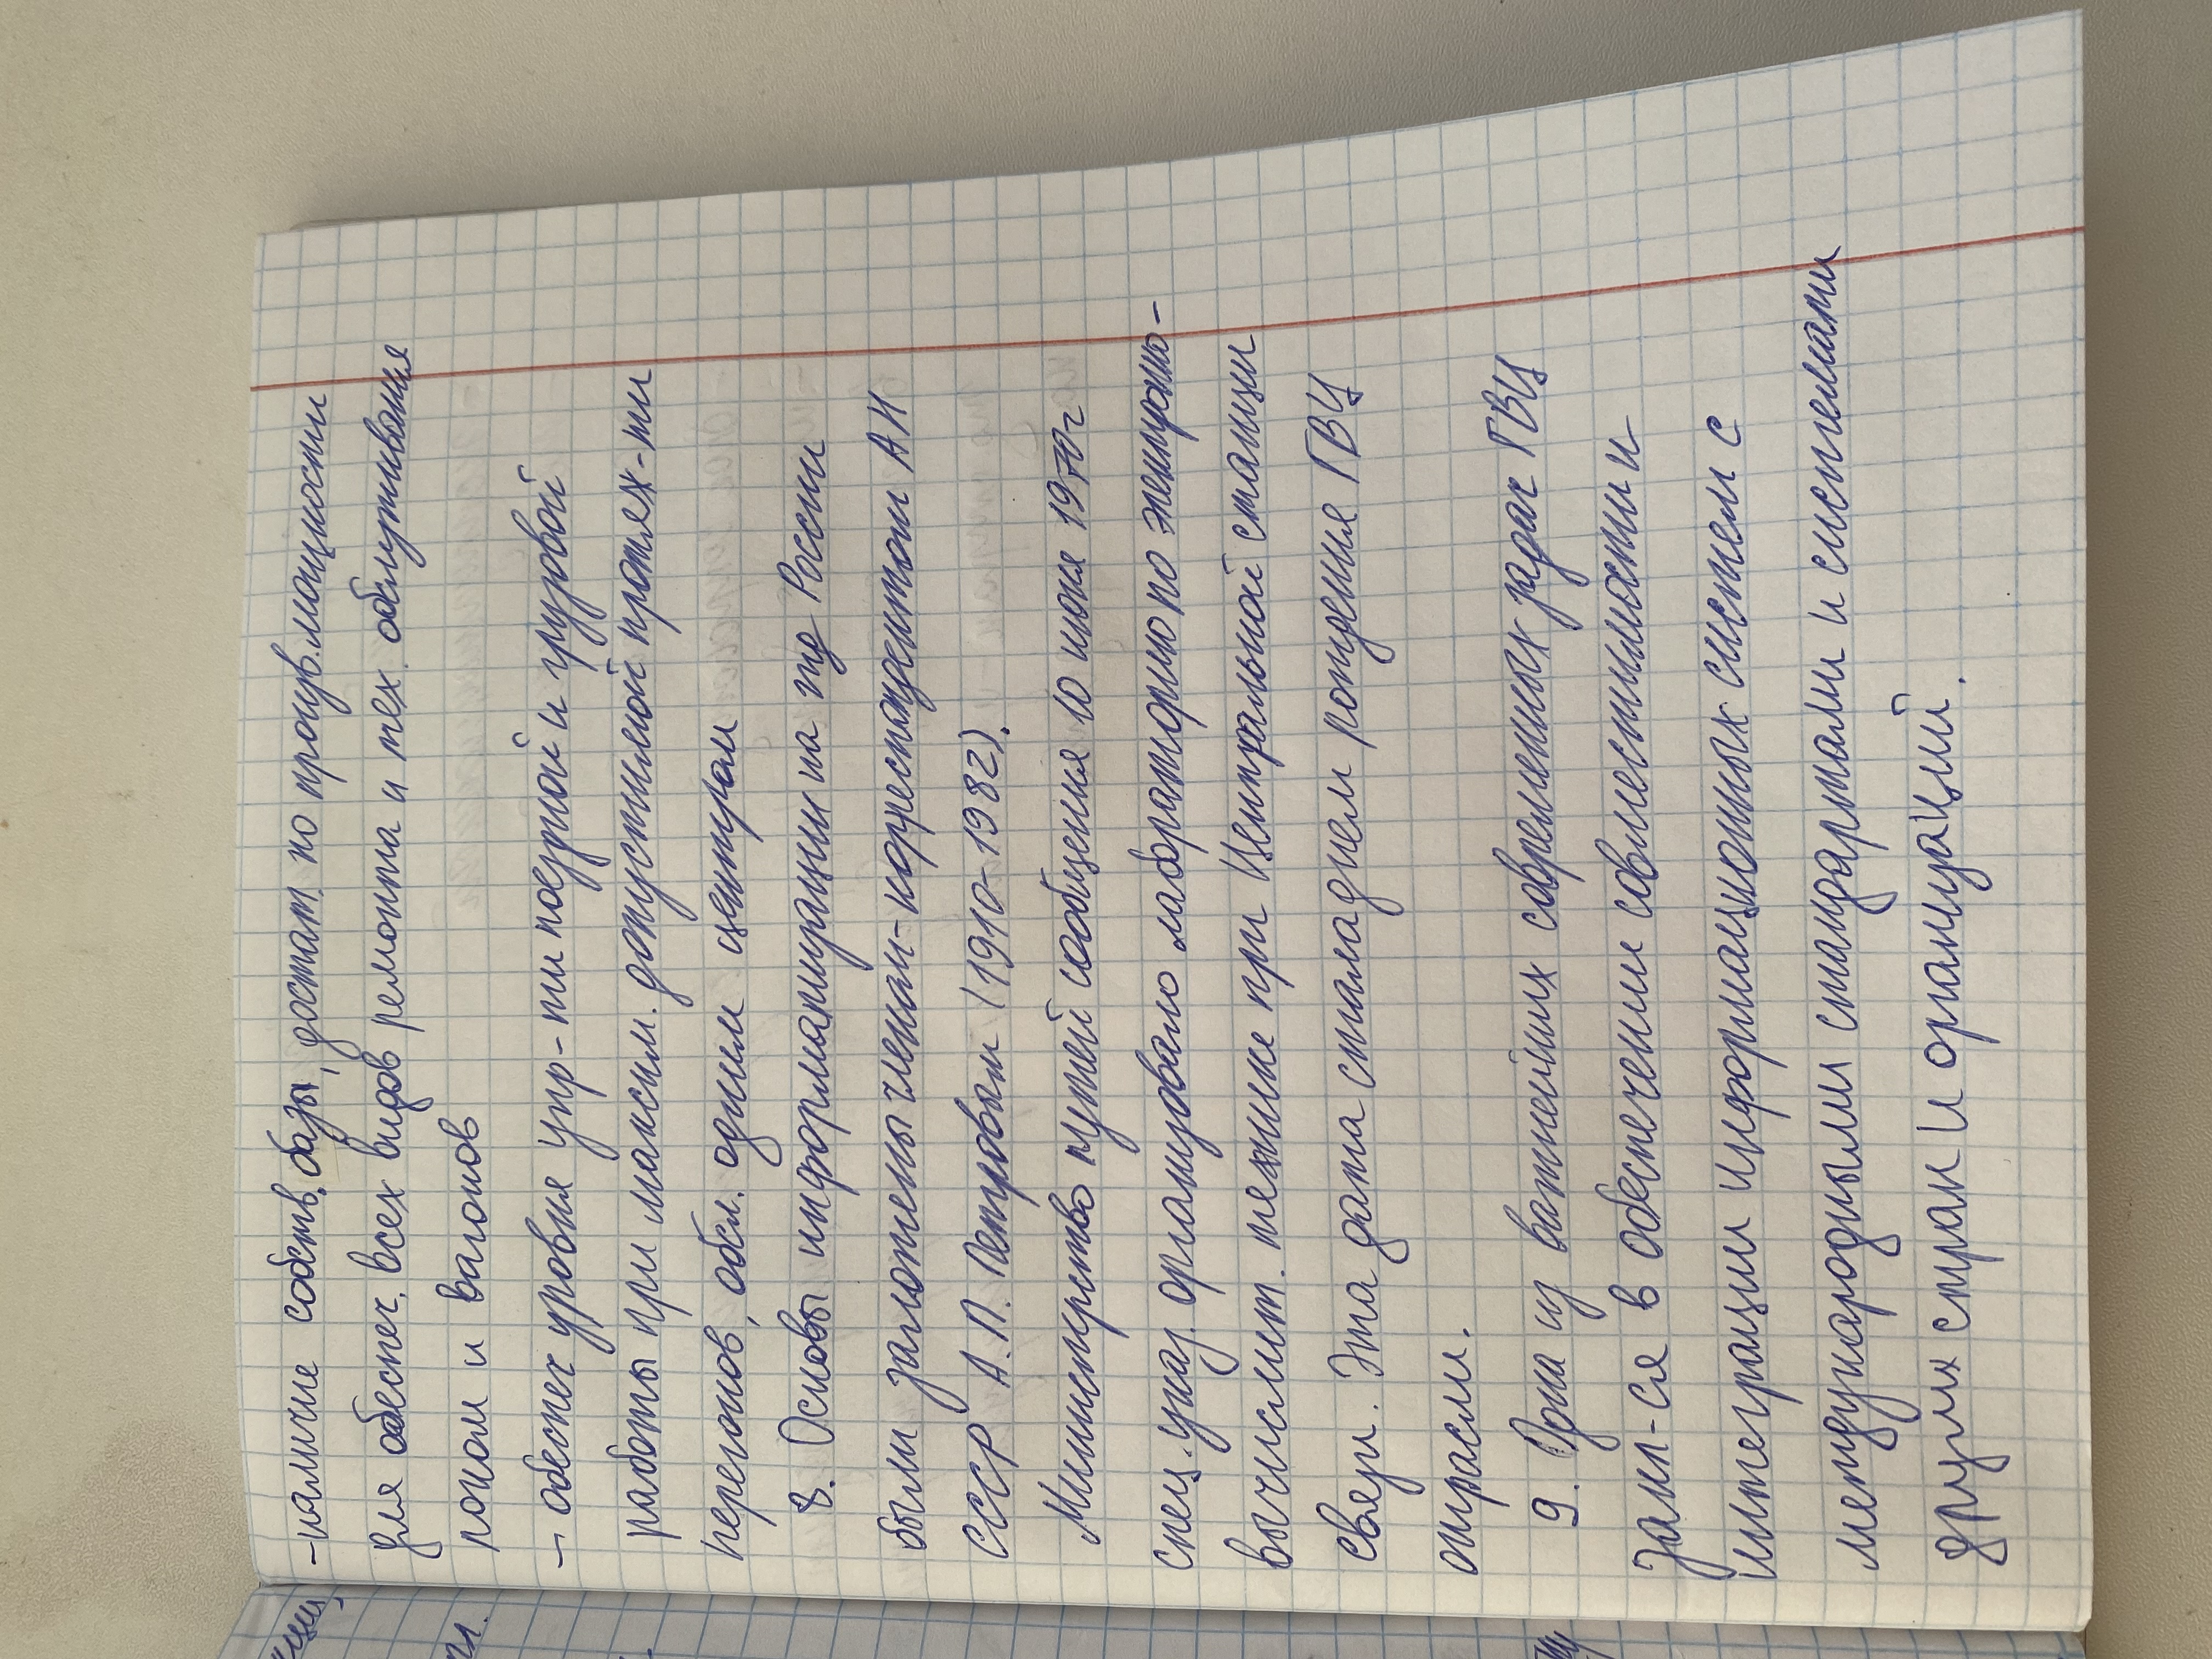 -наличие собств. базы, достат. по произв. мощности
для обеспеч. всех видов ремонта и тех. обслуживания
локом и вагонов
- обеспеч уровня упр-ти поездной и грузовой
работы при максим. допустимой протяж-ти
перегонов, обсл. одним центром
8. Основы информатизации на жд России
были заложены членом-корреспондентом АН
СССР А.П. Петровым (1910-1982).
Министерство путей сообщения 10 июня 1970г
спец. указ. организовало лабораторию по электронно-
вычислит. технике при Центральной станции
связи. Эта дата стала днем рождения ГВЦ
отрасли.
9. Одна из важнейших современных задач ГВЦ
закл-ся в обеспечении совместимости и
интеграции информационных систем с
международными стандартами и системами
других стран и организаций.